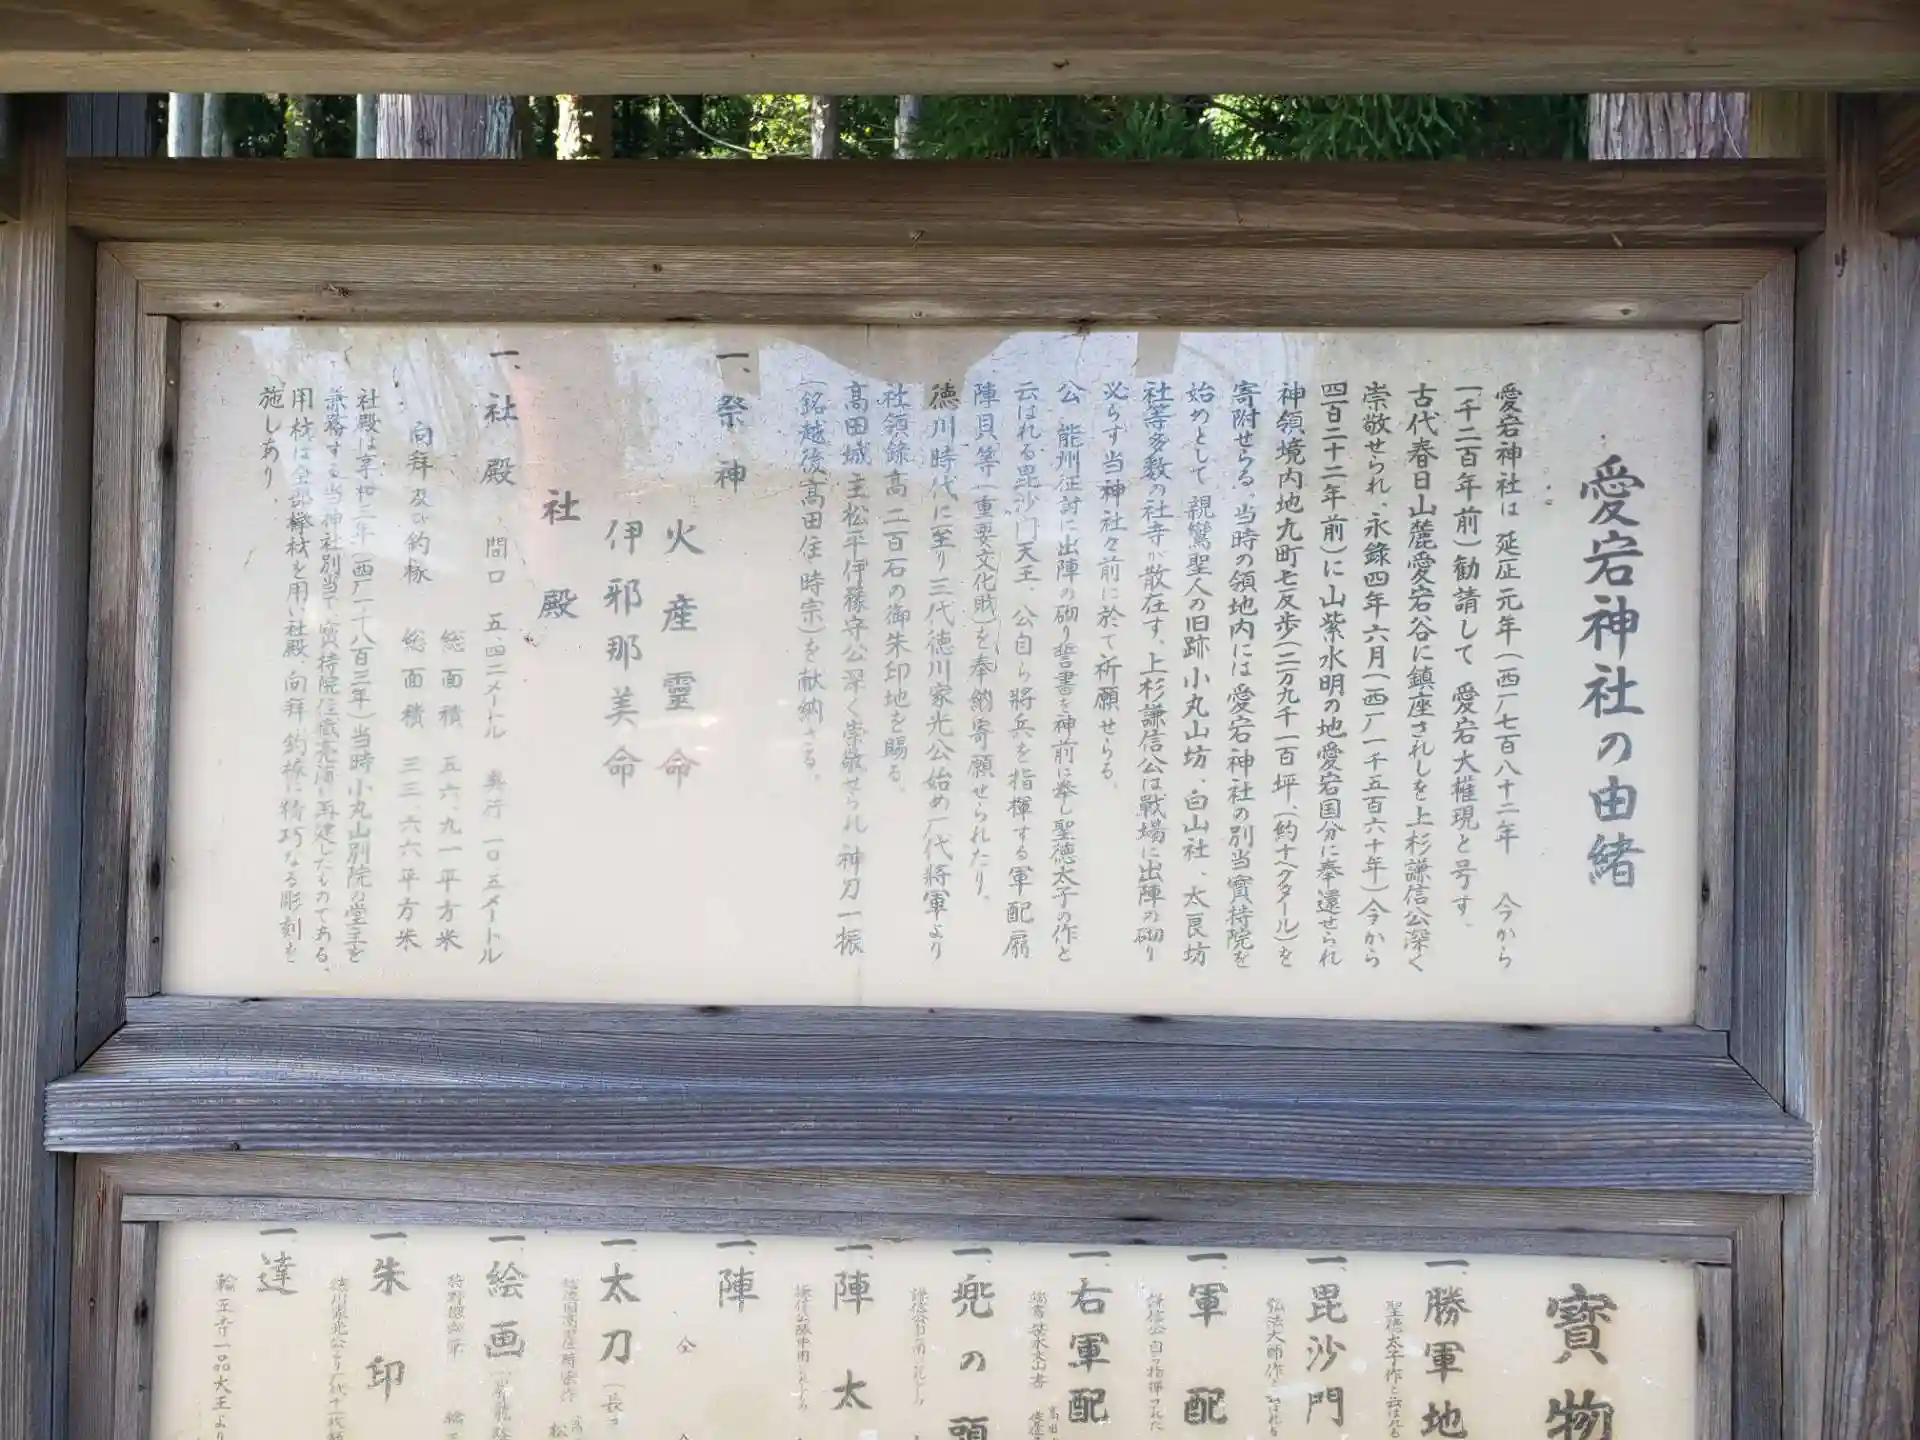 愛宕神社の由緒
愛宕神社は 延疋元年(西厂七百八十二年 今から
一千二百年前)勧請して 愛宕大権現と号す.
古代春日山麓愛宕谷に鎮座されしを上杉謙信公深く
崇敬せられ、永録四年六月(西厂一千五百六十年)今から
四百二十二年前)に山紫水明の地愛宕国分に奉遷せられ
神領境内地九町七反歩(二万九千一百坪、(約十ヘクタール)を
寄附せらる、当時の領地内には愛宕神社の別当寳持院を
始めとして 親鸞聖人の旧跡小丸山坊、白山社、太良坊
社等多数の社寺が散在す、上杉謙信公は戦場に出陣の砌り
必らず当神社々前に於て祈願せらる。
公 能州征討に出陣の砌り誓書を神前に奉し聖徳太子の作と
云はれる毘沙門天王、公自ら將兵を指揮する軍配扇
陣貝等(重要文化財)を奉納寄願せられたり。
徳川時代に至り三代徳川家光公始め厂代將軍より
社領録高二百石の御朱印地を賜る。
高田城主松平伊豫守公深く崇敬せられ神刀一振
(銘越後高田住時宗)を献納さる。
一、祭神
火産靈命
伊邪那美命
社殿
一、社殿 間口 五、四二メートル 奥行 一〇五メートル
総面積 五六、九一平方米
向拜及び釣椽 総面積 三三、六六平方米
社殿は享和三年(西厂一千八百三年)当時小丸山別院の堂主を
兼務する当神社別当で寳持院住職
再建したものである、
用材は全部欅材を用い社殿、向拜、釣椽に精巧なる彫刻を
施しあり、
寳物
一、勝軍地
聖徳太子作と云はれる
一、毘沙門
弘法大師作と云はれる
一、軍配
謙信公自ら指揮された
一、右軍配
一、兜の頭
一、陣太
一、陣
仝
一、太刀(長さ
一、絵画
一、朱印
一、達
輪王寺一品大王より